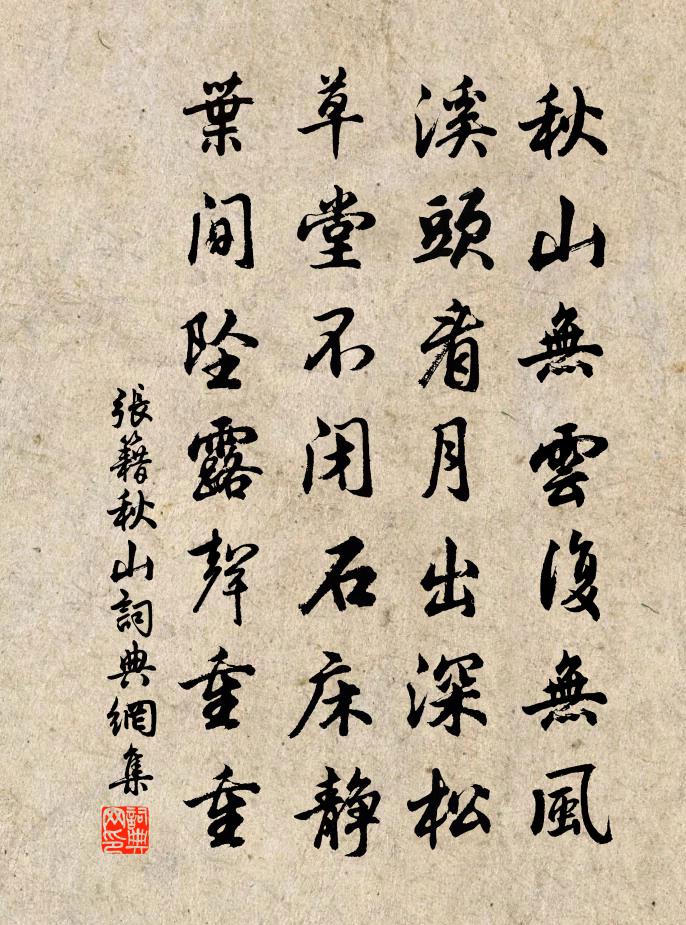 秋山無雲復無風
溪頭看月出深松
草堂不閉石床静
葉間墜露聲重重
張籍秋山詞典網集
詞典網印